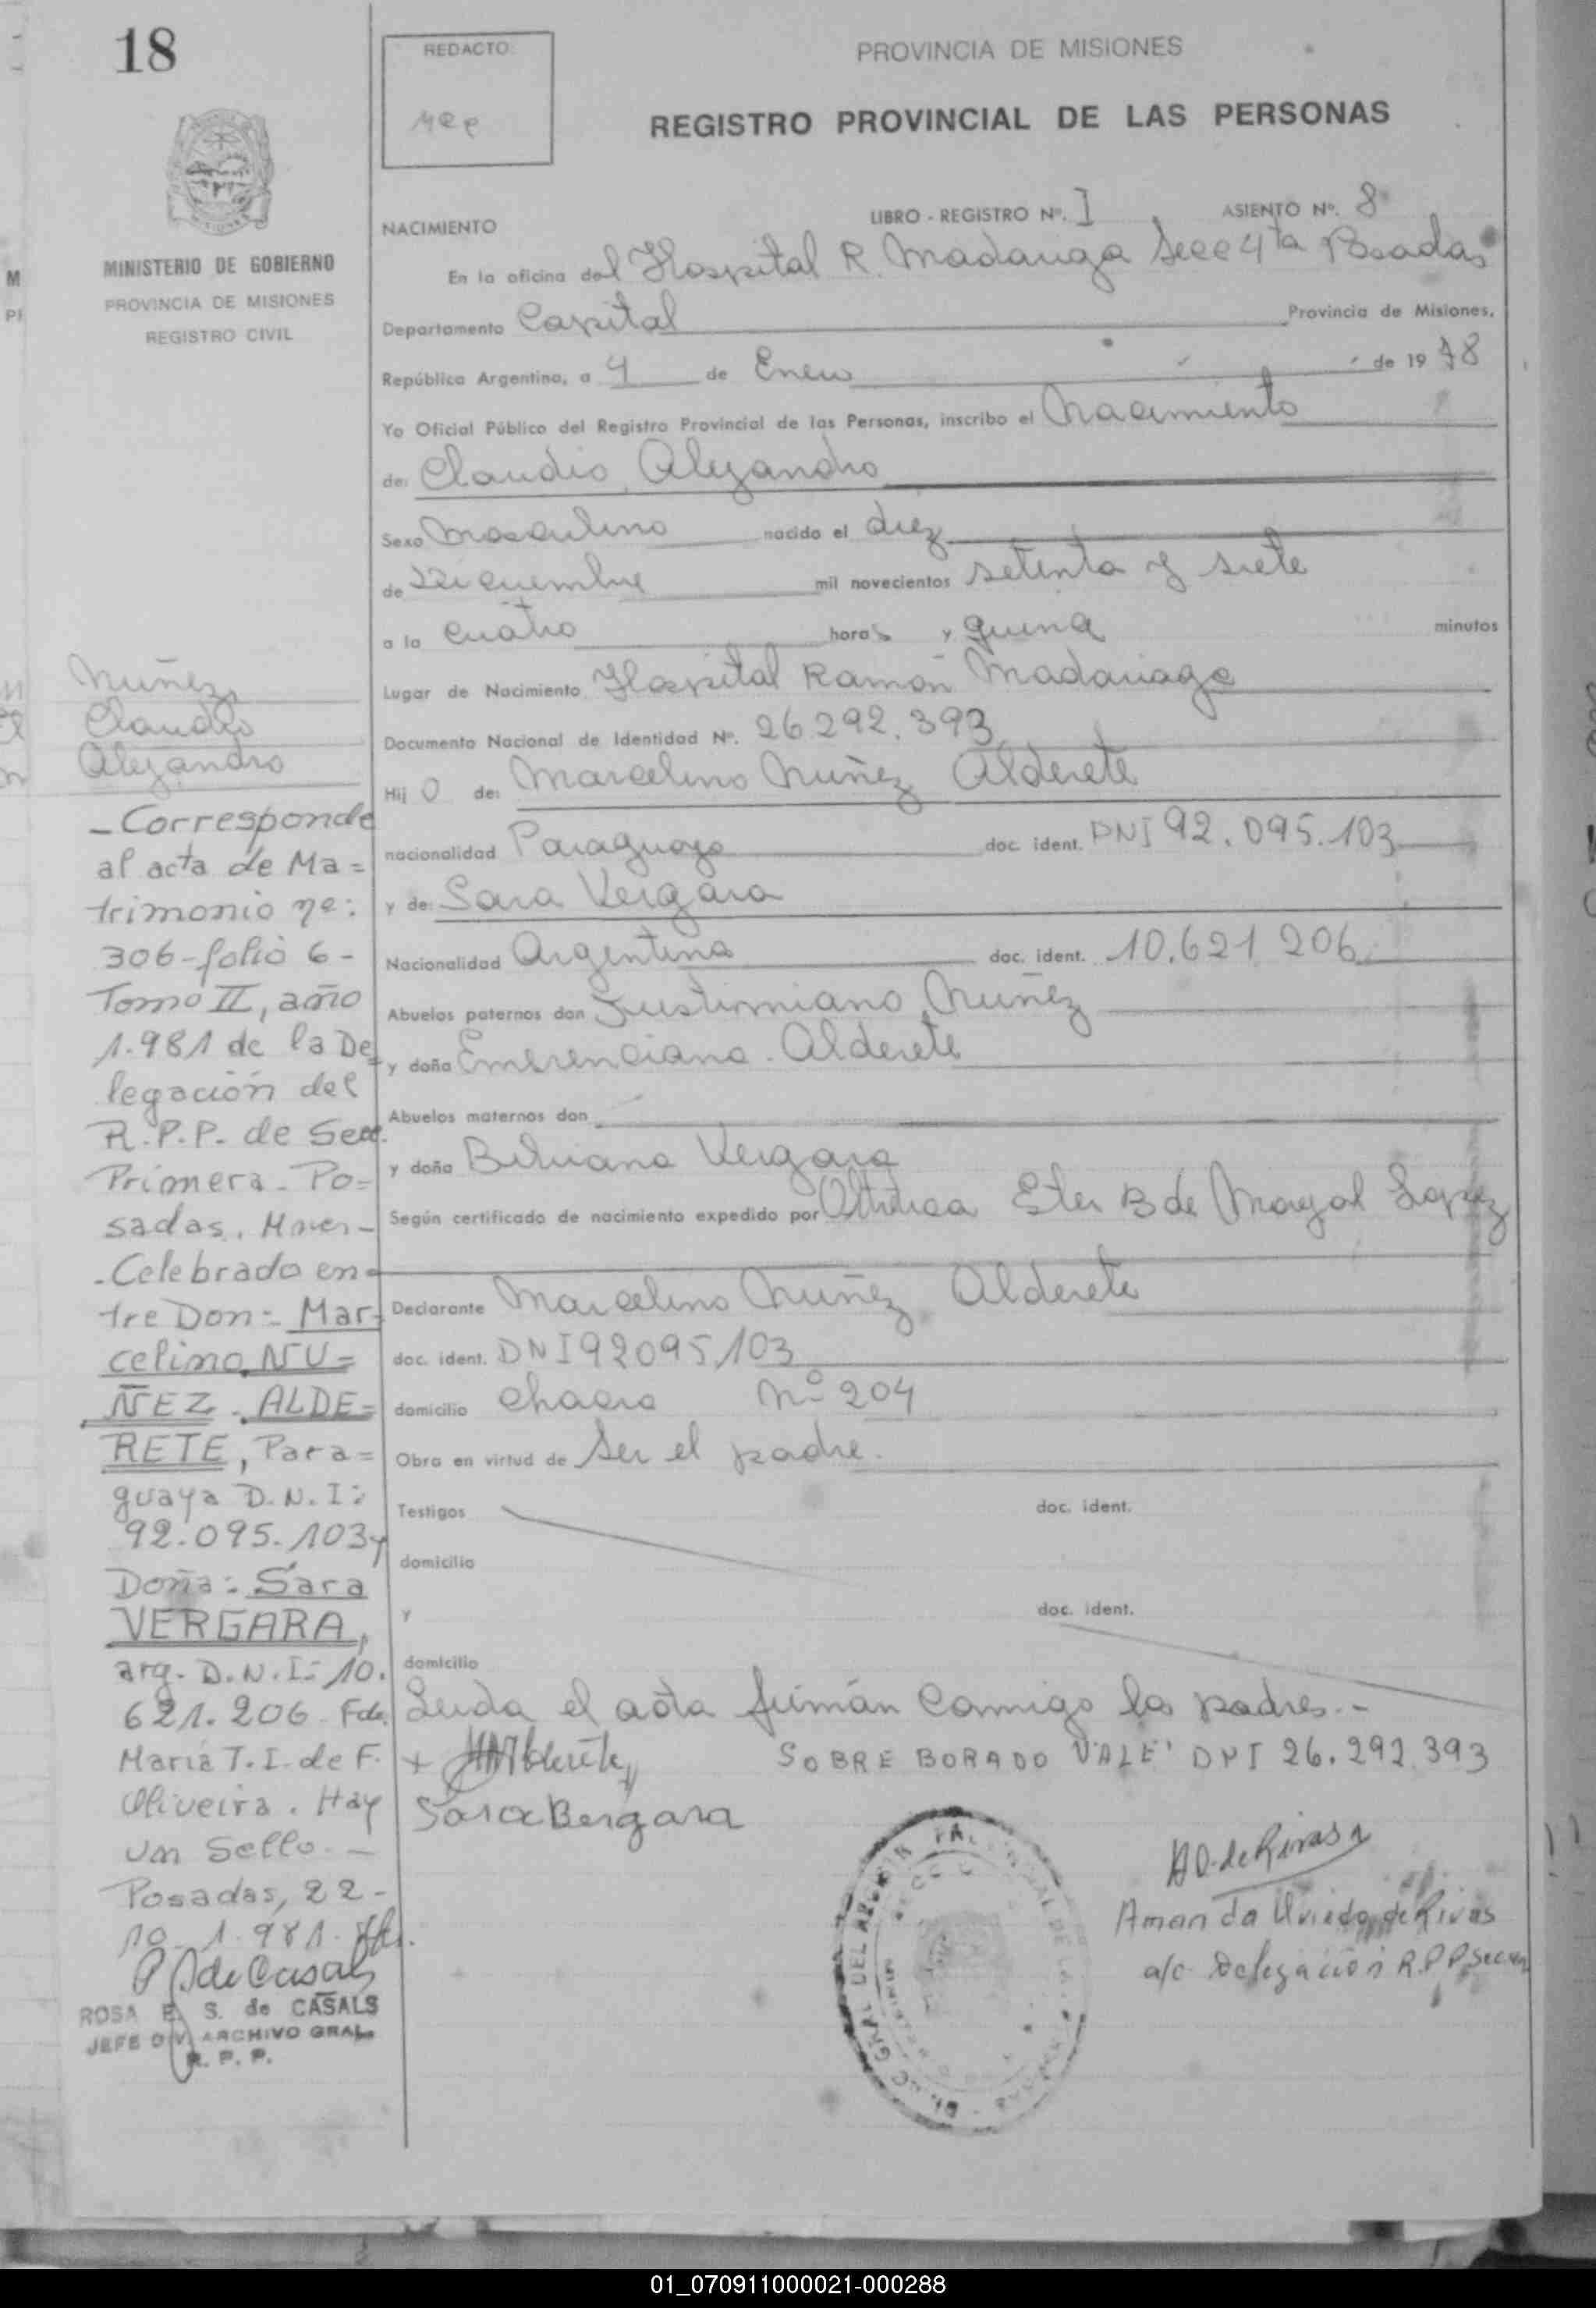 18
REDACTO:
PROVINCIA DE MISIONES
REGISTRO PROVINCIAL DE LAS PERSONAS
MINISTERIO DE GOBIERNO
PROVINCIA DE MISIONES
REGISTRO CIVIL
NACIMIENTO LIBRO - REGISTRO Nº. I ASIENTO Nº. 8
En la oficina del Hospital R. Madariaga Secc 4ta Posadas
Departamento Capital Provincia de Misiones,
República Argentina, a 4 de Enero de 1978
Yo Oficial Público del Registro Provincial de las Personas, inscribo el Nacimiento
de: Claudio Alejandro
Sexo Masculino nacido el diez
de Diciembre mil novecientos setenta y siete
a la cuatro horas y quince minutos
Lugar de Nacimiento Hospital Ramón Madariaga
Documento Nacional de Identidad Nº. 26.292.393
Hij o de: Marcelino Nuñez Alderete
nacionalidad Paraguaya doc. ident. DNI 92.095.103
y de: Sara Vergara
Nacionalidad Argentina doc. ident. 10.621.206
Abuelos paternos don Justiniano Nuñez
y doña Emerenciana Alderete
Abuelos maternos don
y doña Bibiana Vergara
Según certificado de nacimiento expedido por Obstetrica Ester B de Mayol Lopez
Declarante Marcelino Nuñez Alderete
doc. ident. DNI 92095103
domicilio chacra Nº 204
Obra en virtud de Ser el padre.
Testigos doc. ident.
domicilio
y doc. ident.
domicilio
Leida el acta firman conmigo los padres.-
SOBRE BORADO VALE DNI 26.292.393
Sara Bergara
Amanda Oviedo de Rivas
a/c Delegación R.P.P.
Nuñez
Claudio
Alejandro
- Corresponde
al acta de Ma=
trimonio nº:
306-folio 6-
Tomo II, año
1.981 de la De=
legación del
R.P.P. de Secc.
Primera - Po=
sadas, Mnes-
- Celebrado en=
tre Don: Mar=
celino NU=
ÑEZ - ALDE=
RETE, Para=
guaya D.N.I:
92.095.103 y
Doña: Sara
VERGARA,
arg. D.N.I- 10.
621.206 - Fdo.
María T. I. de F.
Oliveira. Hay
un Sello. -
Posadas, 22-
10-1.981.
ROSA E. S. de CASALS
JEFE DIV. ARCHIVO GRAL.
R. P. P.
01_070911000021-000288